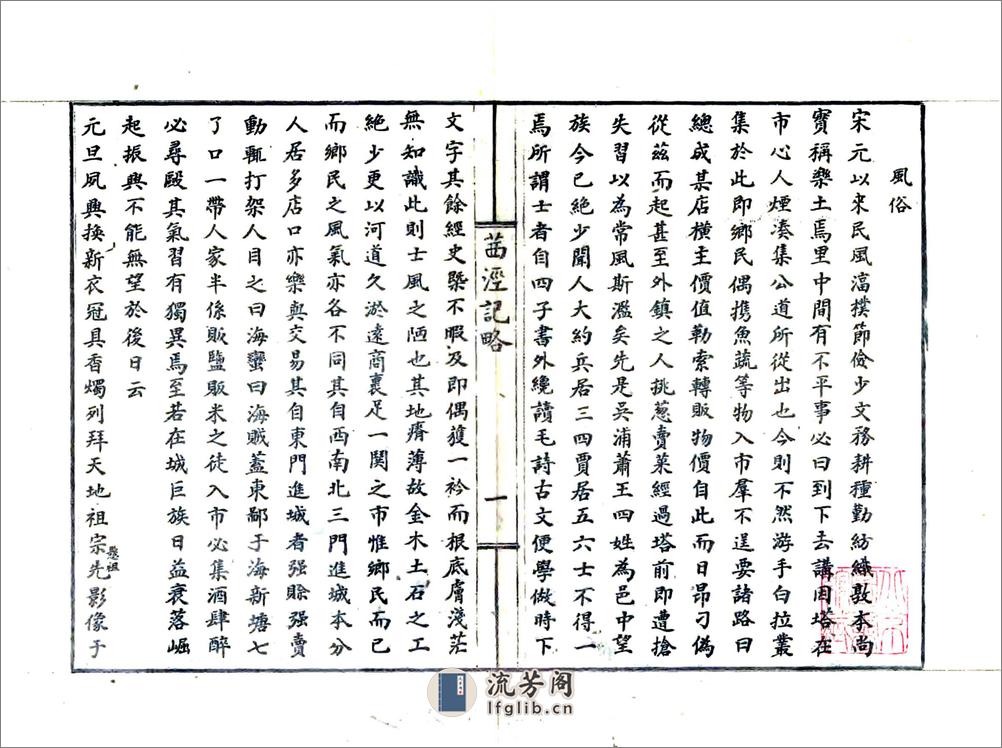 風俗
宋元以來民風滀樸節儉少文務耕種勤紡織敦本尚
實稱樂土焉里中間有不平事必曰到下去講因塔在
市心人煙湊集公道所從出也今則不然游手白拉叢
集於此即鄉民偶携魚蔬等物入市羣不逞要諸路曰
總成某店橫主價值勒索轉販物價自此而日昂刁偽
從茲而起甚至外鎮之人挑葱賣菜經過塔前即遭搶
失習以為常風斯濫矣先是吳浦蕭王四姓為邑中望
族今已絶少聞人大約兵居三四賈居五六士不得一
焉所謂士者自四子書外纔讀毛詩古文便學做時下
茜涇記略
一
文字其餘經史槩不暇及即偶獲一衿而根底膚淺茫
無知識此則士風之陋也其地瘠薄故金木土石之工
絶少更以河道久淤遠商裹足一関之市惟鄉民而已
而鄉民之風氣亦各不同其自西南北三門進城本分
人居多店口亦樂與交易其自東門進城者强賒强賣
動輒打架人目之曰海蠻曰海賊蓋東鄙于海新塘七
了口一帶人家半係販鹽販米之徒入市必集酒肆醉
必尋毆其氣習有獨異焉至若在城巨族日益衰落崛
起振興不能無望於後日云
元旦夙興換新衣冠具香燭列拜天地祖宗懸祖先影像于
流芳阁
lfglib.cn